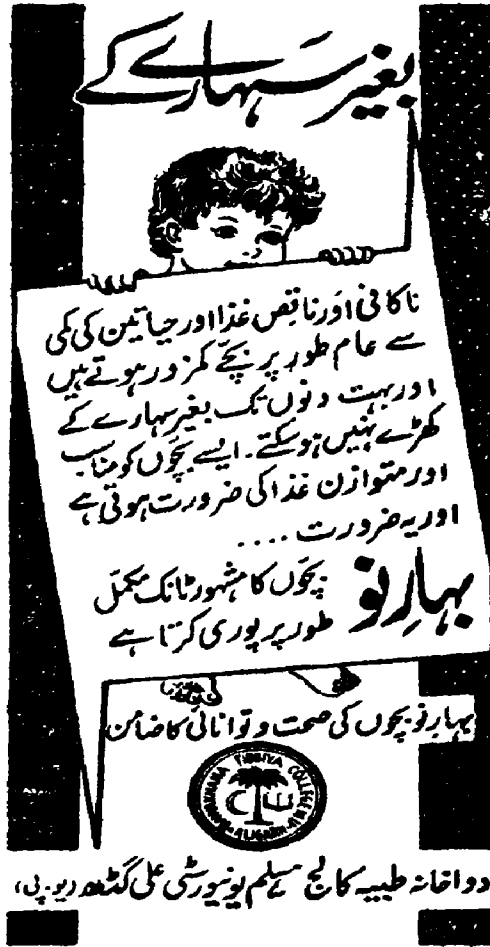 بغیر سہارے کے
ناکافی اور ناقص غذا اور حیاتین کی کمی
سے عام طور پر بچے کمزور ہوتے ہیں
اور بہت دنوں تک بغیر سہارے کے
کھڑے نہیں ہوسکتے۔ ایسے بچوں کو مناسب
اور متوازن غذا کی ضرورت ہوتی ہے
اور یہ ضرورت ....
بہارِ نو بچوں کا مشہور ٹانک مکمل
طور پر پوری کرتا ہے
بہارِ نو بچوں کی صحت و توانائی کا ضامن
DAWAKHANA TIBBIYA COLLEGE M.U. ALIGARH
دواخانہ طبیہ کالج مسلم یونیورسٹی علی گڈھ (یو۔ پی)